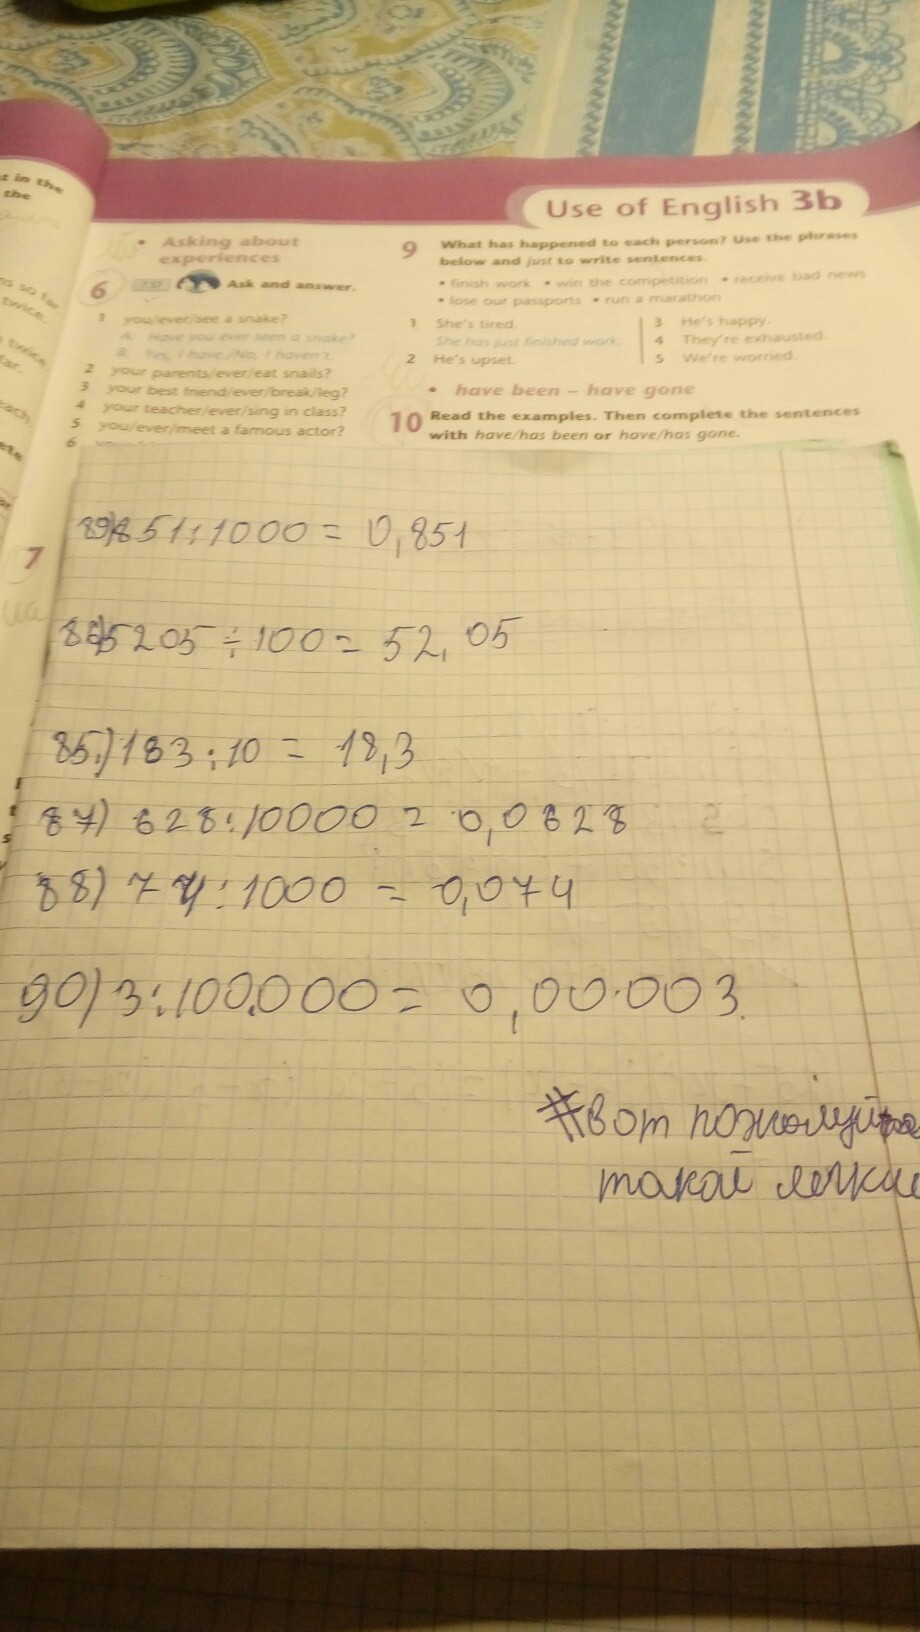 t in the
the
ns so far
twice.
twice
far.
each.
ete
7
Use of English 3b
• Asking about
experiences
6 Ask and answer.
1 you/ever/see a snake?
A: Have you ever seen a snake?
B: Yes, I have./No, I haven't.
2 your parents/ever/eat snails?
3 your best friend/ever/break/leg?
4 your teacher/ever/sing in class?
5 you/ever/meet a famous actor?
6
9 What has happened to each person? Use the phrases
below and just to write sentences.
• finish work • win the competition • receive bad news
• lose our passports • run a marathon
1 She's tired.
She has just finished work.
2 He's upset.
3 He's happy.
4 They're exhausted.
5 We're worried.
• have been – have gone
10 Read the examples. Then complete the sentences
with have/has been or have/has gone.
89) 851:1000 = 0,851
86) 5205 ÷ 100 = 52,05
85.) 183:10 = 18,3
87) 628:10000 = 0,0628
88) 74:1000 = 0,074
90) 3:100.000 = 0,00.003.
#вот пожалуйста
такой легкие